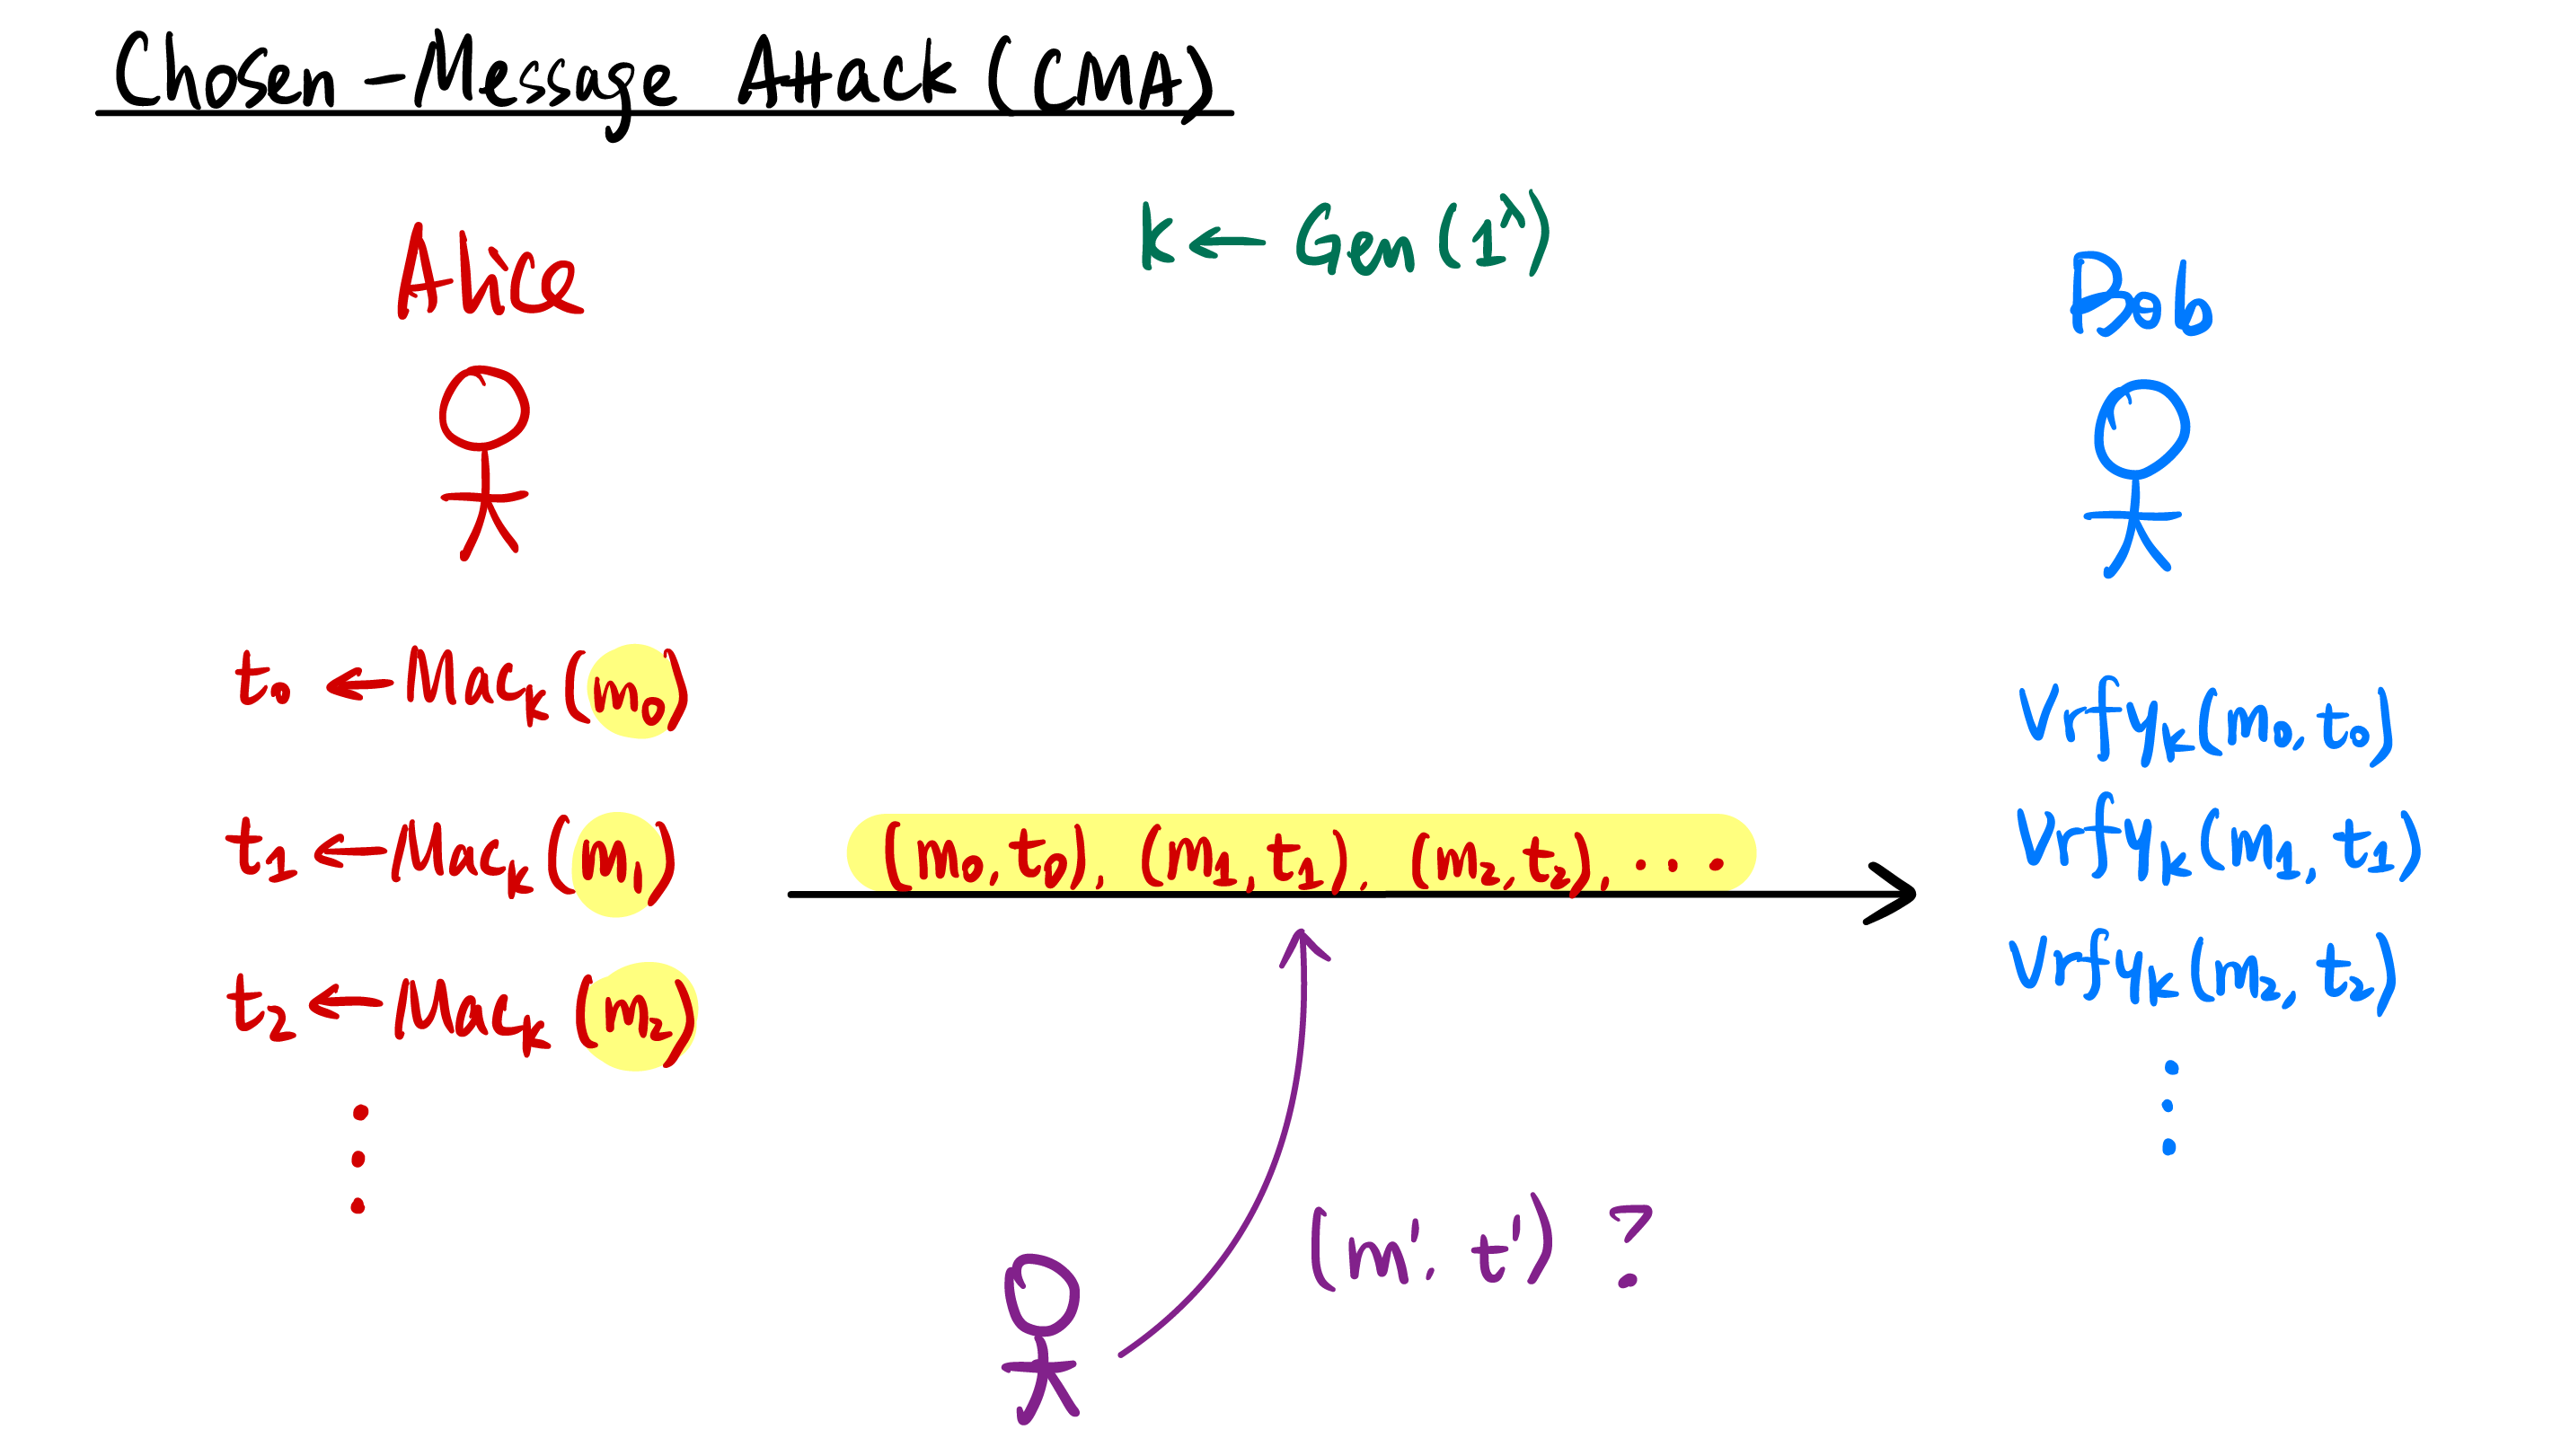 Chosen-Message Attack (CMA)
k ← Gen (1^λ)
Alice
Bob
t₀ ← Mac_k (m₀)
t₁ ← Mac_k (m₁)
t₂ ← Mac_k (m₂)
⋮
(m₀, t₀), (m₁, t₁), (m₂, t₂), ...
Vrfy_k (m₀, t₀)
Vrfy_k (m₁, t₁)
Vrfy_k (m₂, t₂)
⋮
(m', t') ?